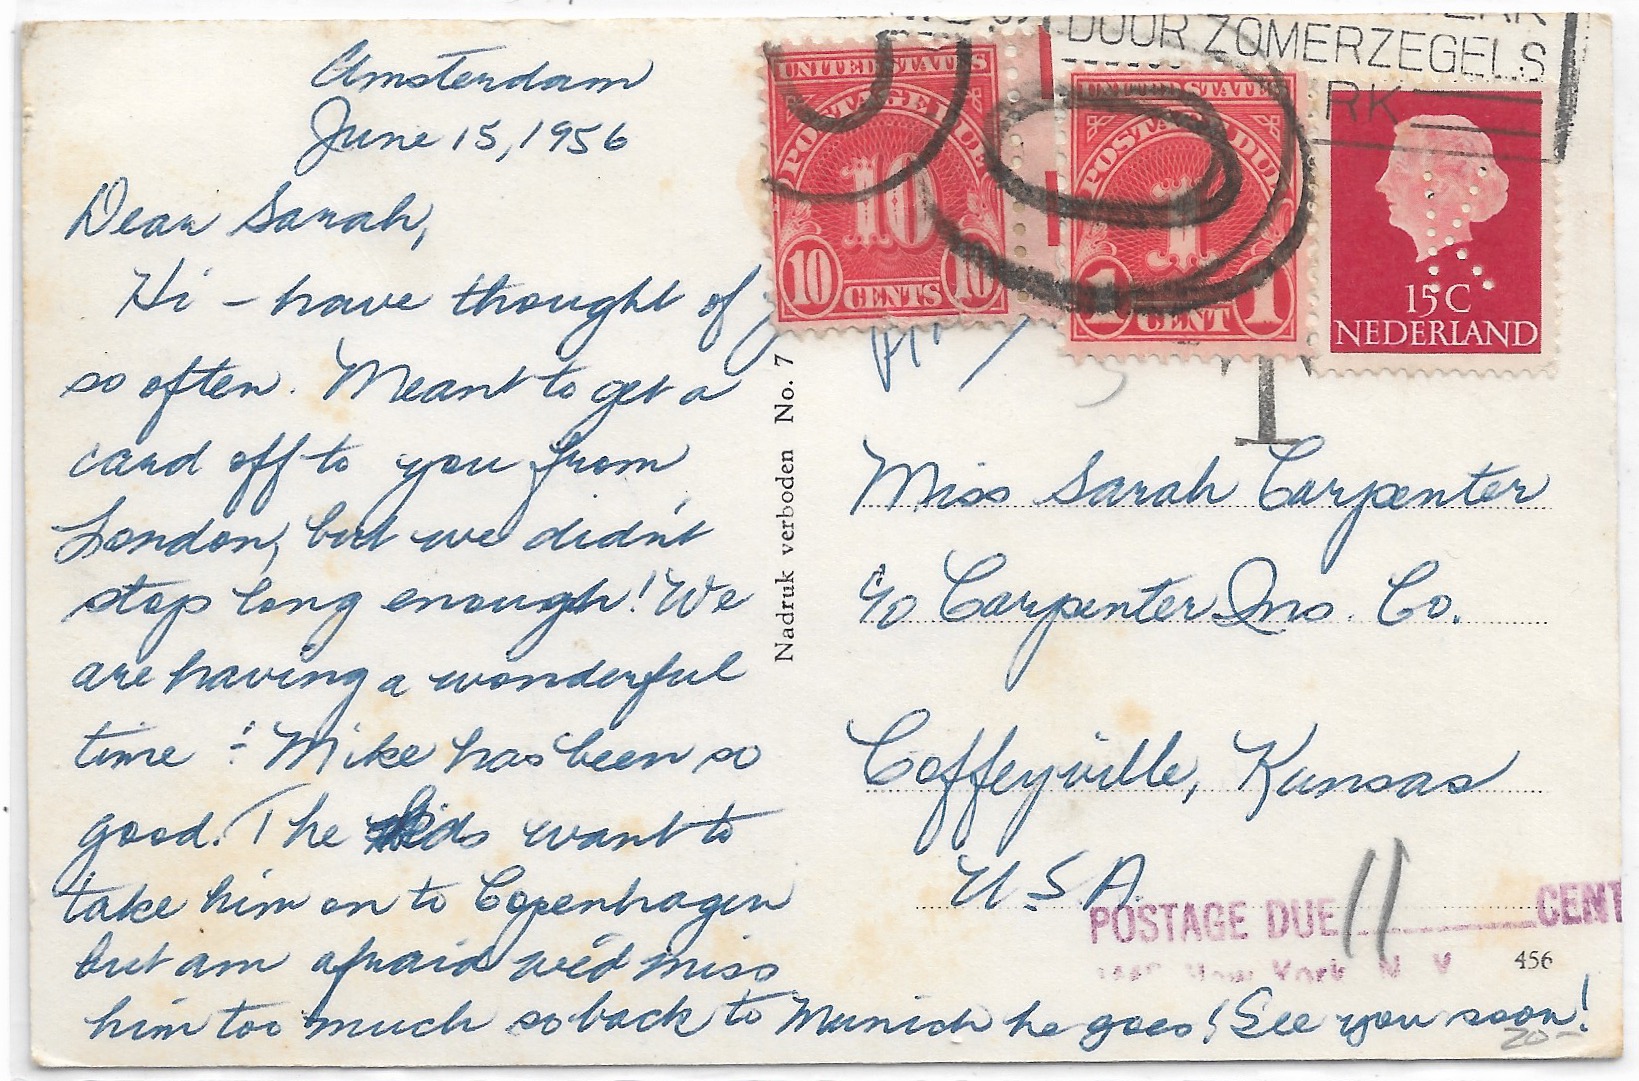 Amsterdam
June 15, 1956
Dear Sarah,
Hi – have thought of
so often. Meant to get a
card off to you from
London, but we didn't
stop long enough! We
are having a wonderful
time – Mike has been so
good. The kids want to
take him on to Copenhagen
but am afraid we'd miss
him too much so back to Munich he goes! See you soon!
Nadruk verboden No. 7
DOOR ZOMERZEGELS
RK
UNITED STATES
POSTAGE DUE
10
10 CENTS 10
UNITED STATES
POSTAGE DUE
1
1 CENT 1
15 C
NEDERLAND
T
Miss Sarah Carpenter
c/o Carpenter Ins. Co.
Coffeyville, Kansas
U.S.A.
POSTAGE DUE 11 CENT
New York N Y
456
20-